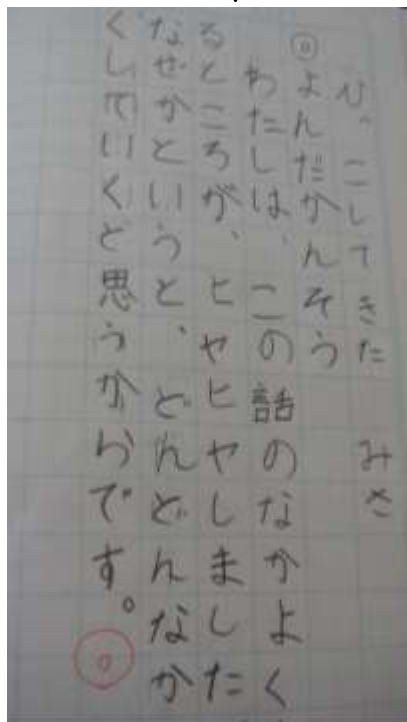 ひっこしてきた　みさ
◎よんだかんそう
わたしは、この話のなかよく
るところが、ヒヤヒヤしました
なぜかというと、どんどんなか
くしていくと思うからです。